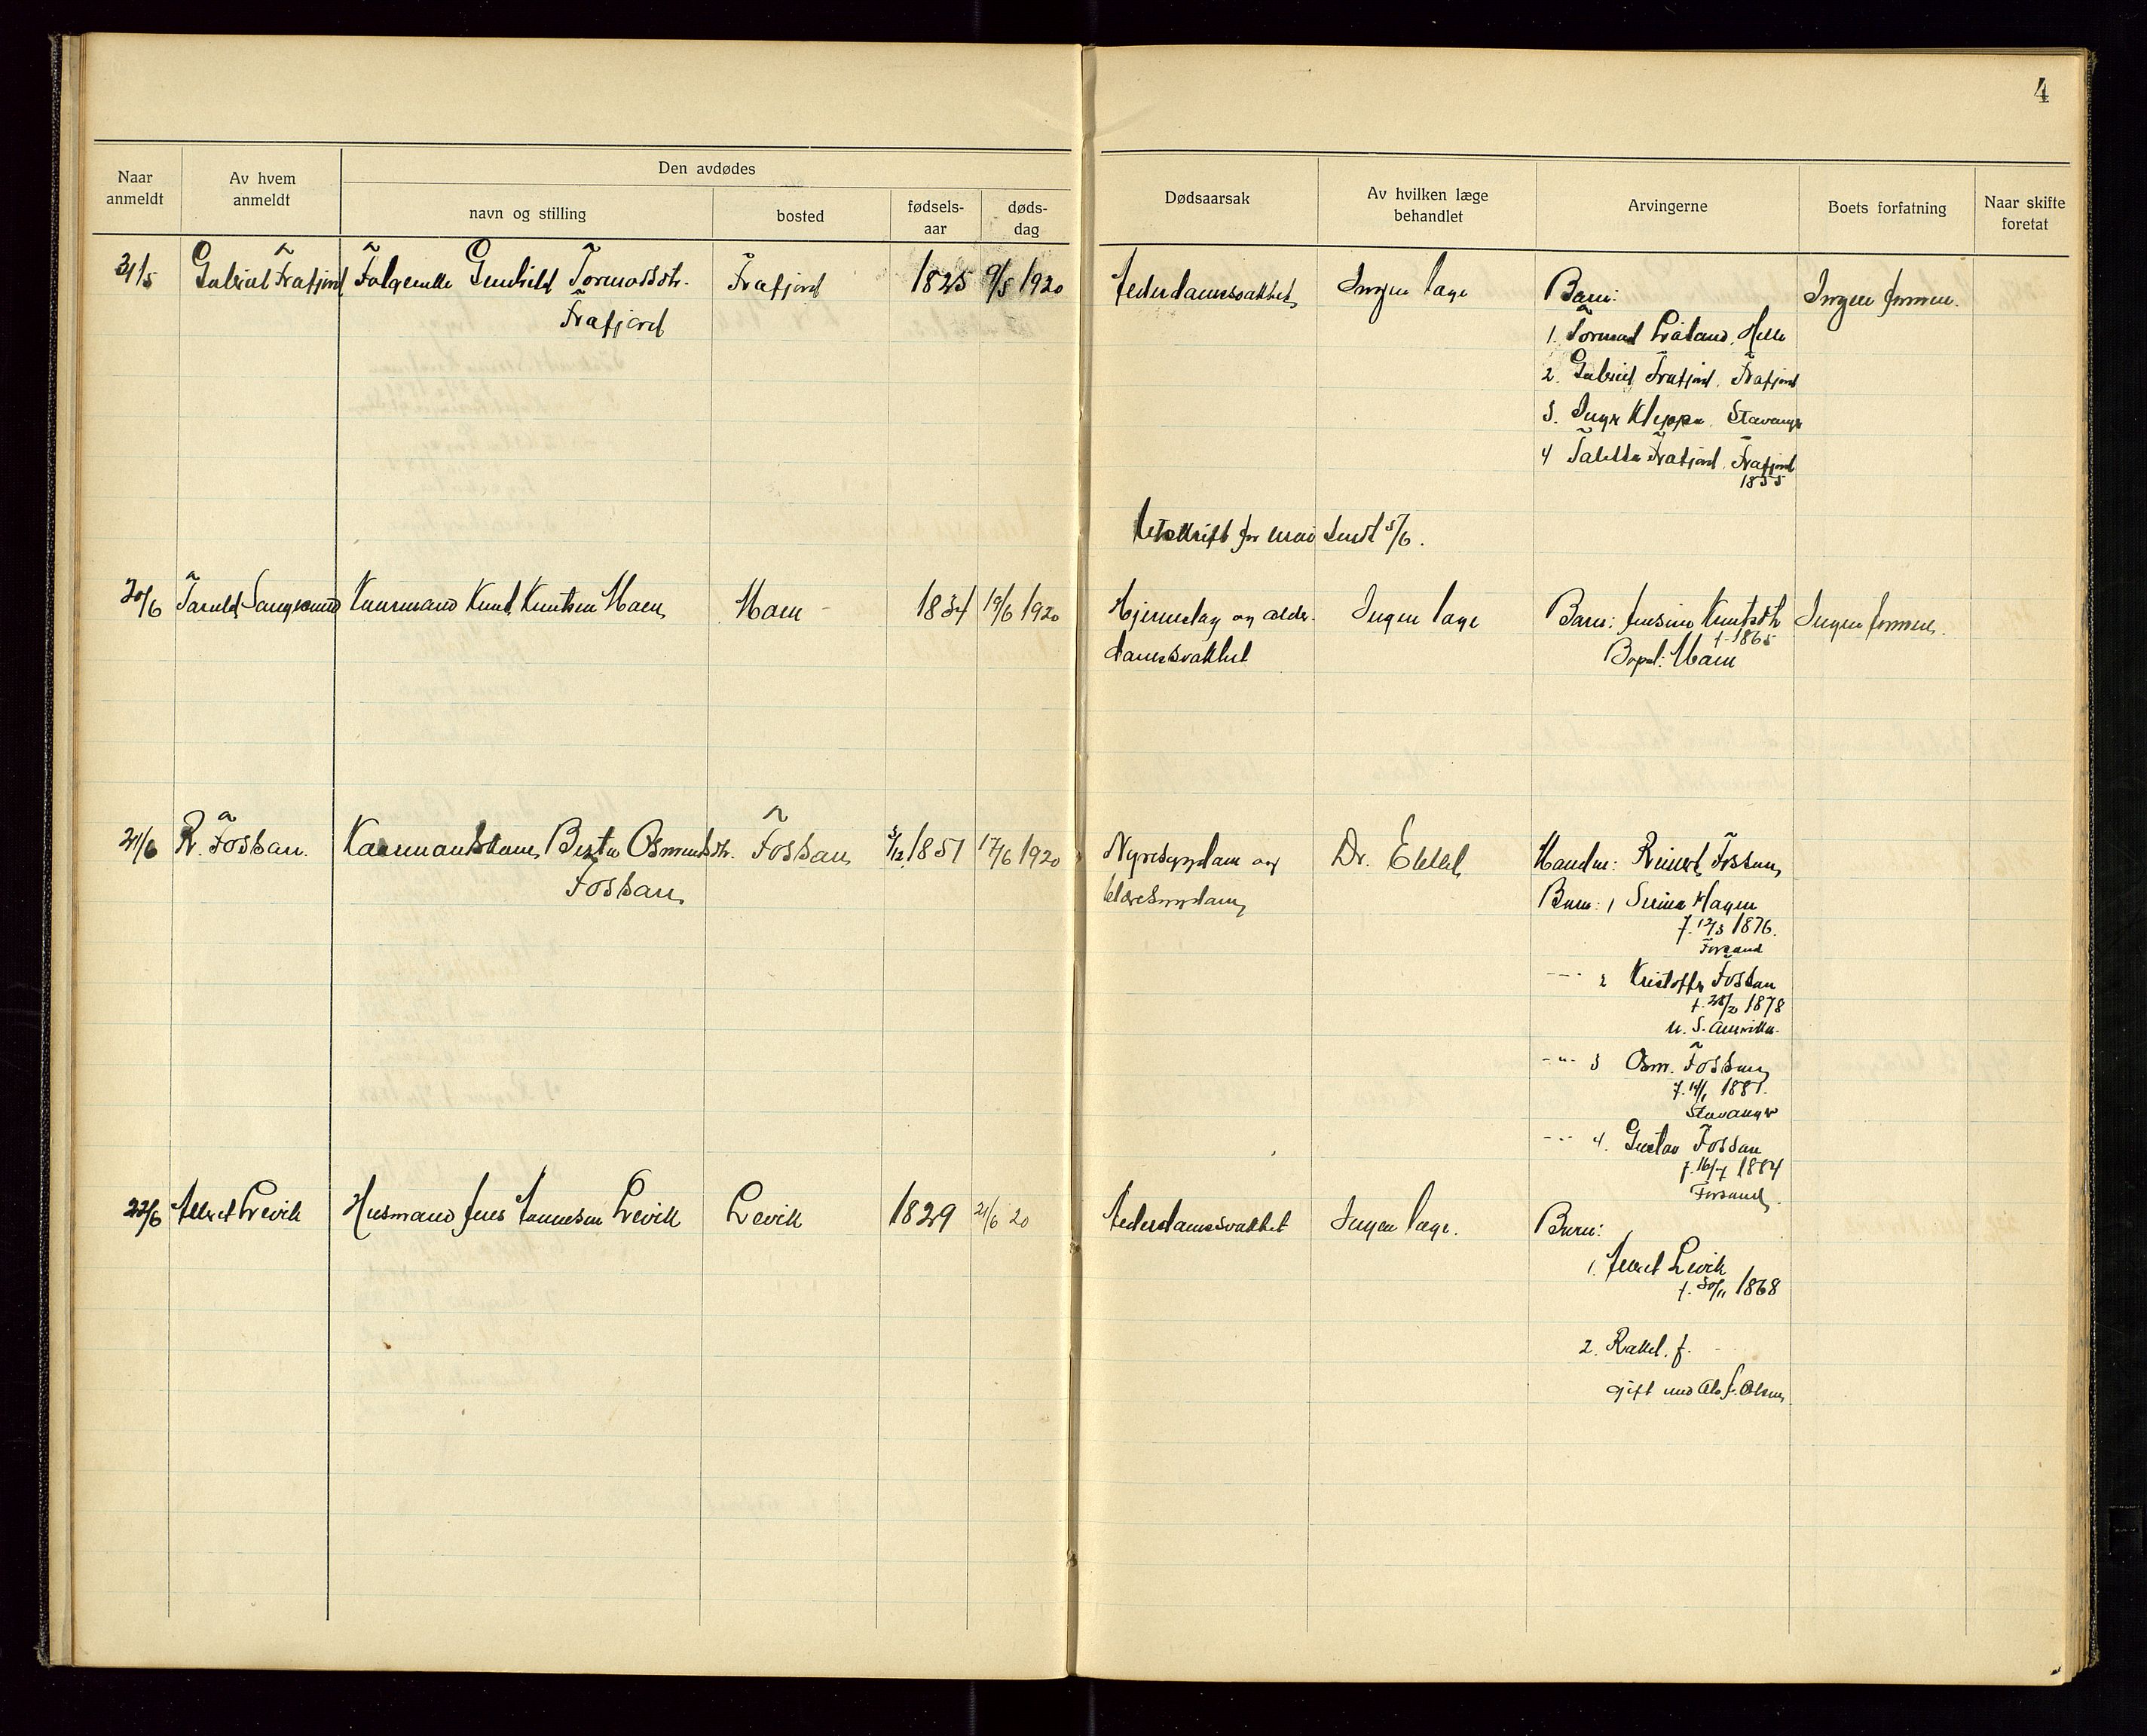 4
Naar anmeldt
Av hvem anmeldt
Den avdødes
navn og stilling
bosted
fødsels-aar
døds-dag
Dødsaarsak
Av hvilken læge behandlet
Arvingerne
Boets forfatning
Naar skifte foretat
31/5 Gabriel Frafjord Folgeenke Gunhild Tormodsdtr. Frafjord 1825 9/5 1920 Alderdomssvakhet Ingen læge Barn: Ingen formue.
Frafjord
1. Tormod Lråland, Helle
2. Gabriel Frafjord, Frafjord
3. Inger Kleppa, Stavanger
4 Tabitha Frafjord, Frafjord
1855
Utskrift for mai sendt 5/6.
20/6 Tarald Haaneman Knud Knutsen Moen Moen 1834 19/6 1920 Hjerneslag og alder- Ingen læge Barn: Jensine Knutsdtr Ingen formue.
f. 1865
domssvakhet Bopel: Moen
21/6 R. Fossan. Kaarmandskone Berta Osmundsdtr. Fossan 3/12 1851 17/6 1920 Nyresygdom og Dr. Eckel Manden: Reinert Fossan
Fossan
Barn: 1 Serine Hagen
f. 12/3 1876.
Forsand
--- 2 Kristoffer Fossan
f. 28/2 1878
U. S. Amerika.
-"- 3 Osm. Fossan
f. 14/1 1881.
Stavanger
--- 4. Gustav Fossan
f. 16/7 1884
Forsand.
22/6 Albert Levik Husmand Jens Hannesen Levik Levik 1829 21/6 20 Alderdomssvakhet Ingen læge. Barn:
1. Albert Levik
f. 30/11 1868
2. Rakel. f.
gift med Ole J. Olsen